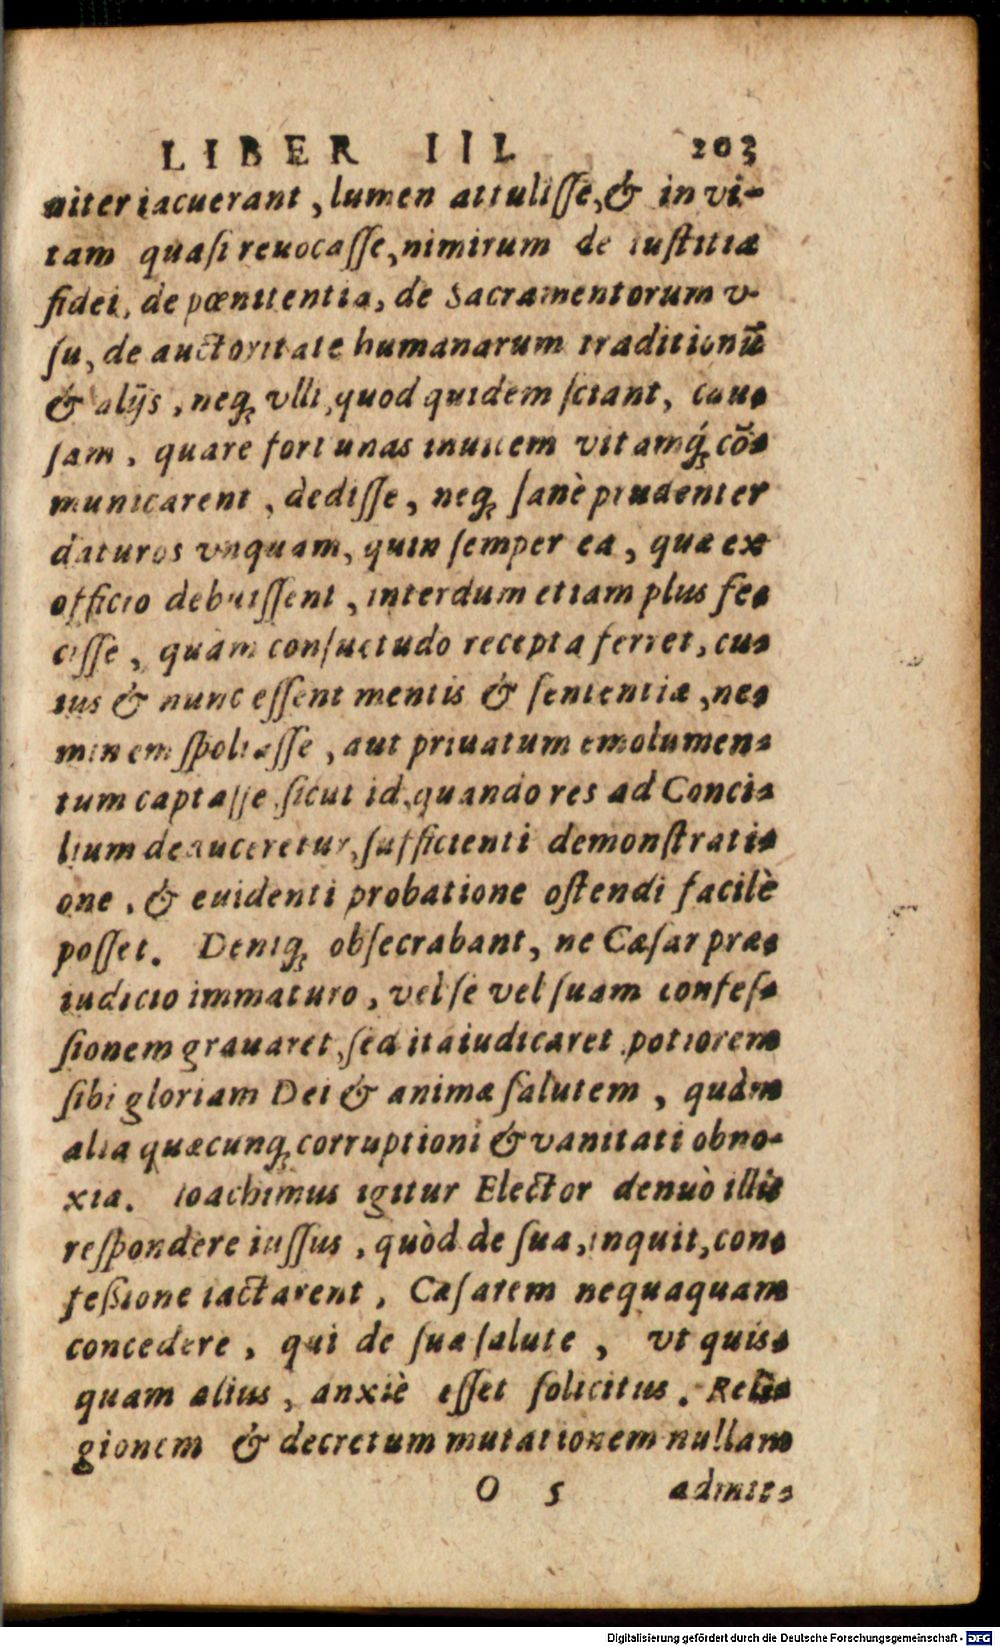 LIBER III. 203
uiter iacuerant, lumen attulisse, & in vi-
tam quasi reuocasse, nimirum de iustitia
fidei, de pœnitentia, de Sacramentorum v-
su, de auctoritate humanarum traditionũ
& alijs, neq; vlli, quod quidem sciant, cau-
sam, quare fortunas inuicem vitamq́; cõ-
municarent, dedisse, neq; sanè prudenter
daturos vnquam, quin semper ea, quæ ex
officio debuissent, interdum etiam plus fe-
cisse, quàm consuetudo recepta ferret, cu-
ius & nunc essent mentis & sententiæ, ne-
minem spoliasse, aut priuatum emolumen-
tum captasse, sicut id, quando res ad Conci-
lium deduceretur, sufficienti demonstrati-
one, & euidenti probatione ostendi facilè
posset. Deniq; obsecrabant, ne Cæsar præ-
iudicio immaturo, vel se vel suam confes-
sionem grauaret, sed ita iudicaret potiorem
sibi gloriam Dei & animæ salutem, quàm
alia quæcunq; corruptioni & vanitati obno-
xia. Ioachimus igitur Elector denuò illis
respondere iussus, quòd de sua, inquit, con-
fessione iactarent, Cæsarem nequaquam
concedere, qui de sua salute, vt quis-
quam alius, anxiè esset solicitus. Reli-
gionem & decretum mutationem nullam
O 5 admit-
Digitalisierung gefördert durch die Deutsche Forschungsgemeinschaft - DFG